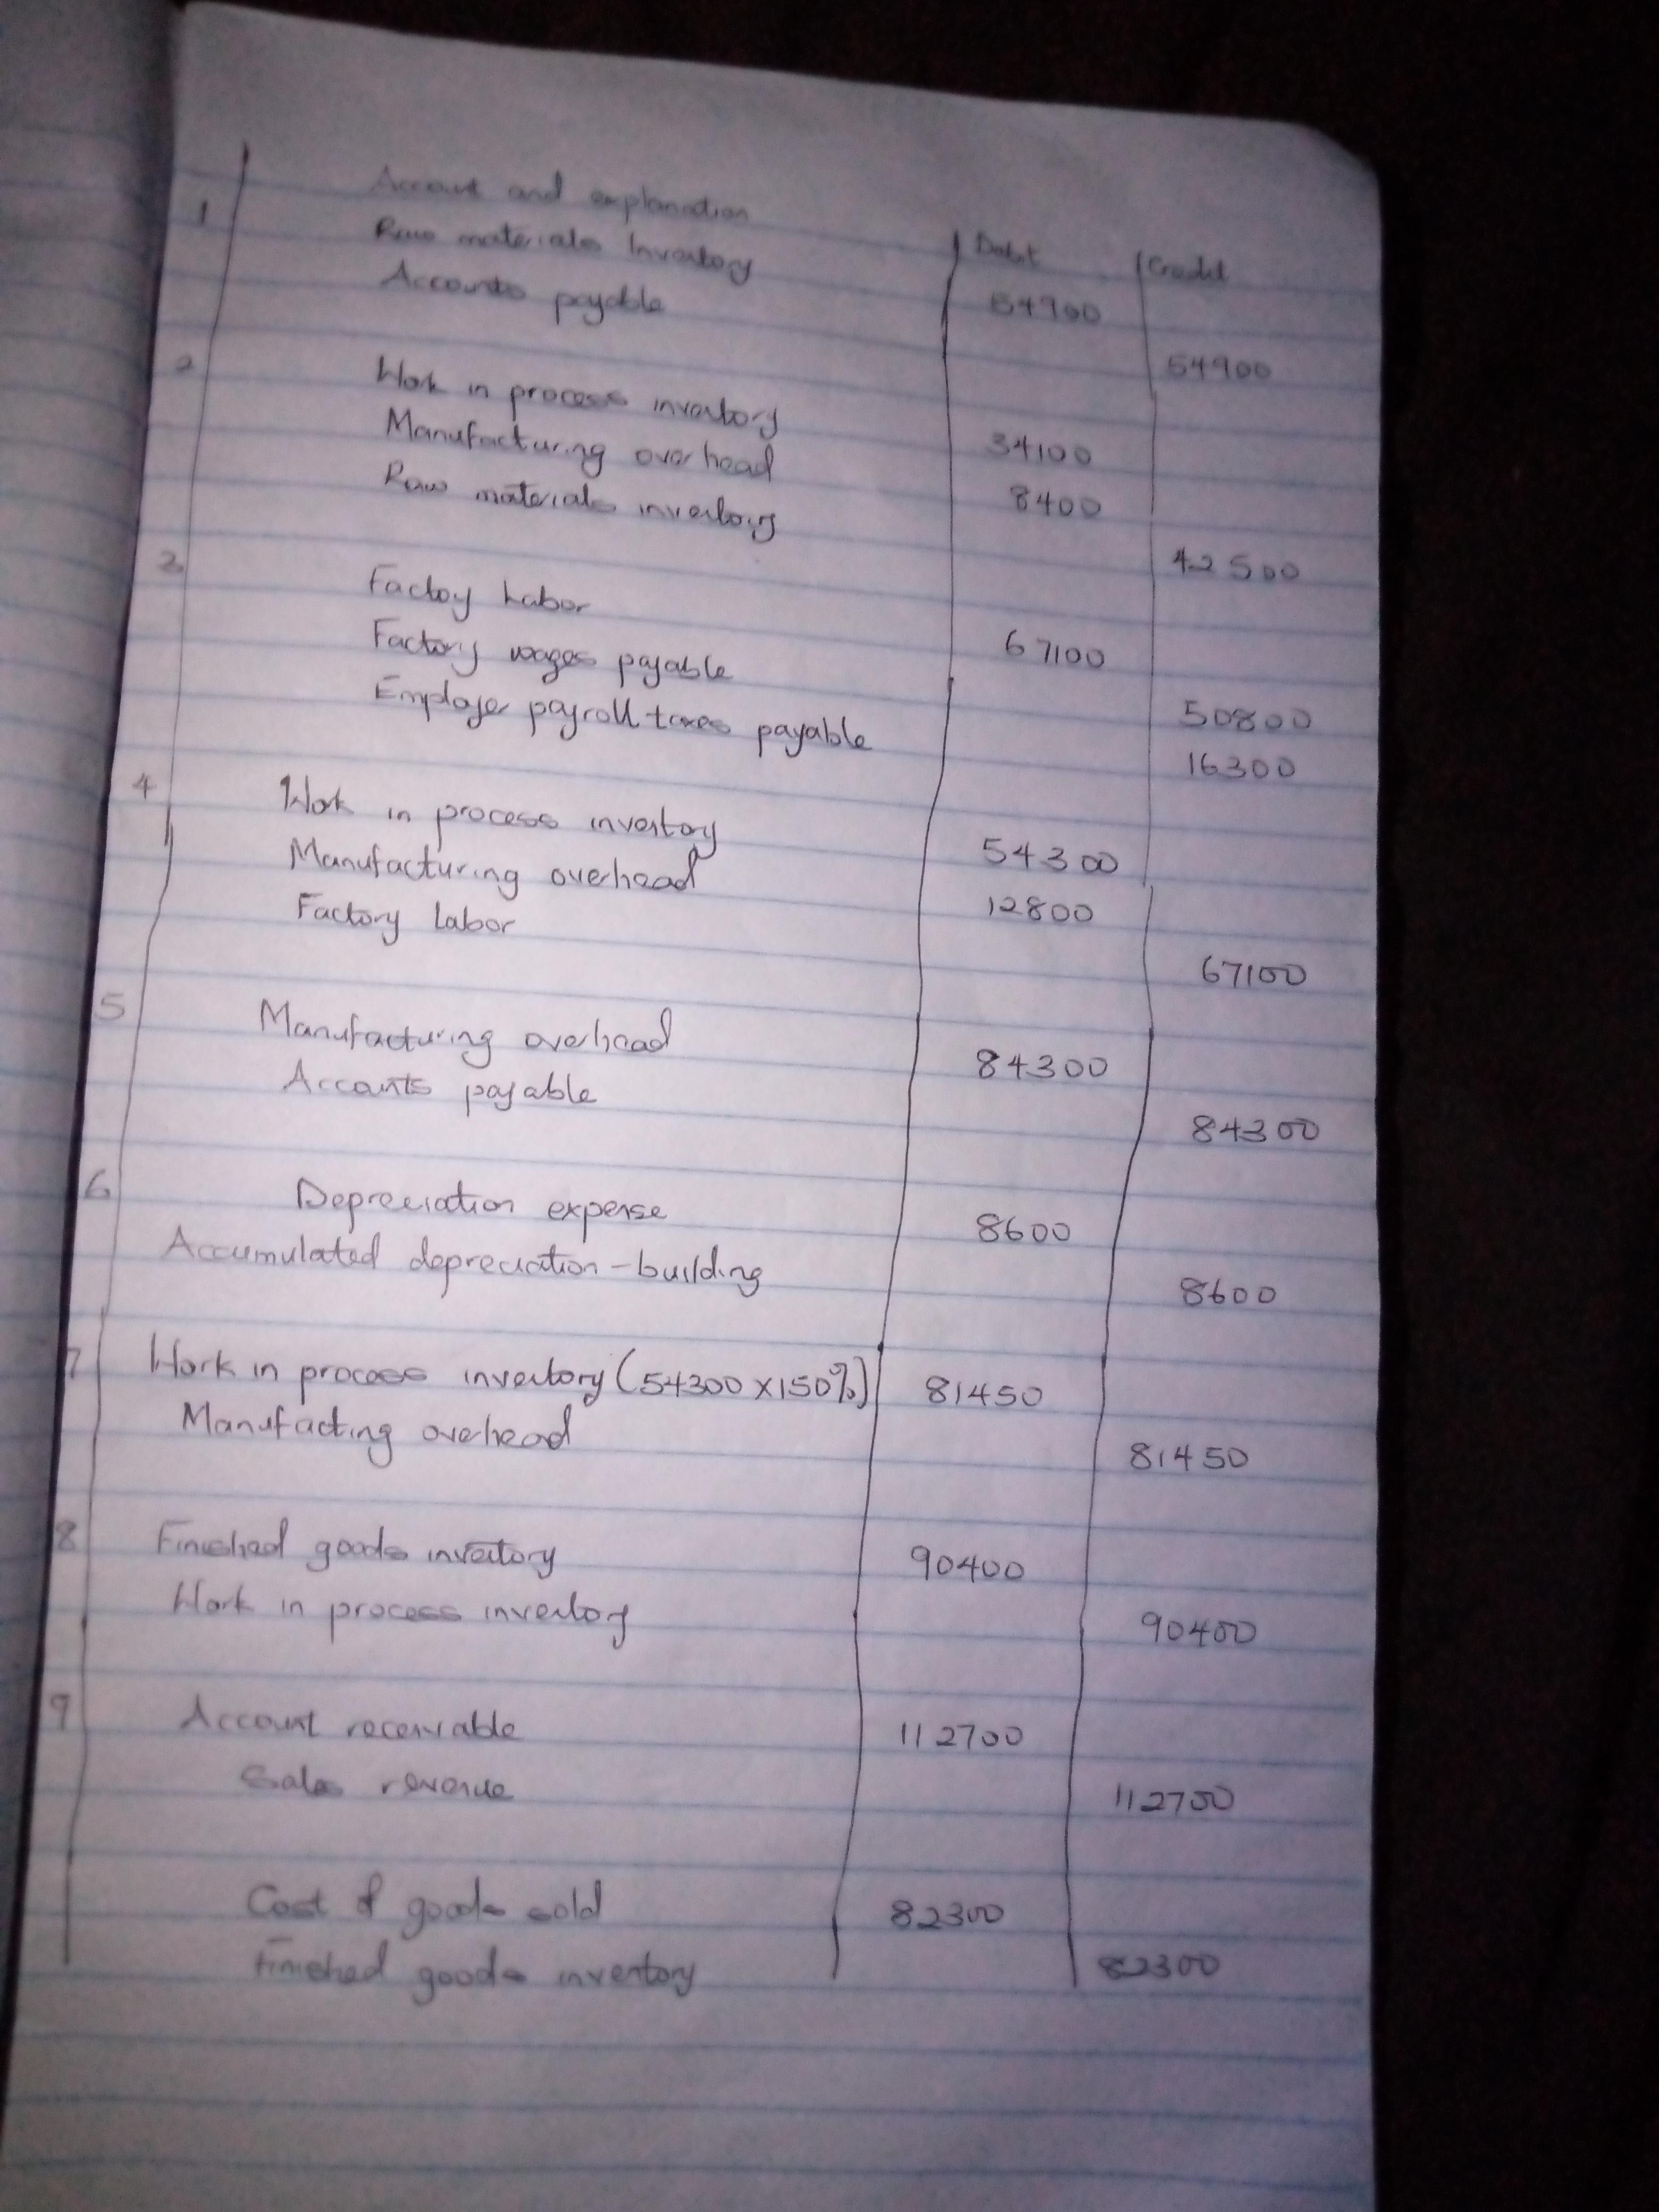 Account and explanation
Debit Credit
1 Raw materials Inventory 54900
Accounts payable 54900
2 Work in process inventory 34100
Manufacturing overhead 8400
Raw materials inventory 42500
3 Factoy Labor 67100
Factory wages payable 50800
Employer payroll taxes payable 16300
4 Work in process inventory 54300
Manufacturing overhead 12800
Factory Labor 67100
5 Manufacturing overhead 84300
Accounts payable 84300
6 Depreciation expense 8600
Accumulated depreciation - building 8600
7 Work in process inventory (54300 x 150%) 81450
Manufacting overhead 81450
8 Finished goods inventory 90400
Work in process inventory 90400
9 Account receivable 112700
Sales revenue 112700
Cost of goods sold 82300
Finished goods inventory 82300